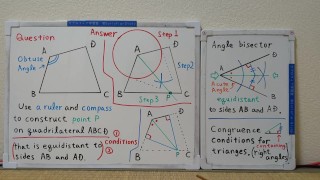 Question
Answer
Step 1
A
D
Obtuse
Angle
B
C
A
D
Step2
Step3
P
B
C
Use a ruler and compass
to construct point P
on quadrilateral ABCD
that is equidistant to
sides AB and AD.
①
②
conditions
A
D
B
P
C
Angle bisector
D
A
Acute
Angle
B
equidistant
to sides AB and AD.
Congruence
conditions for
triangles, (right
angles)
containing
P